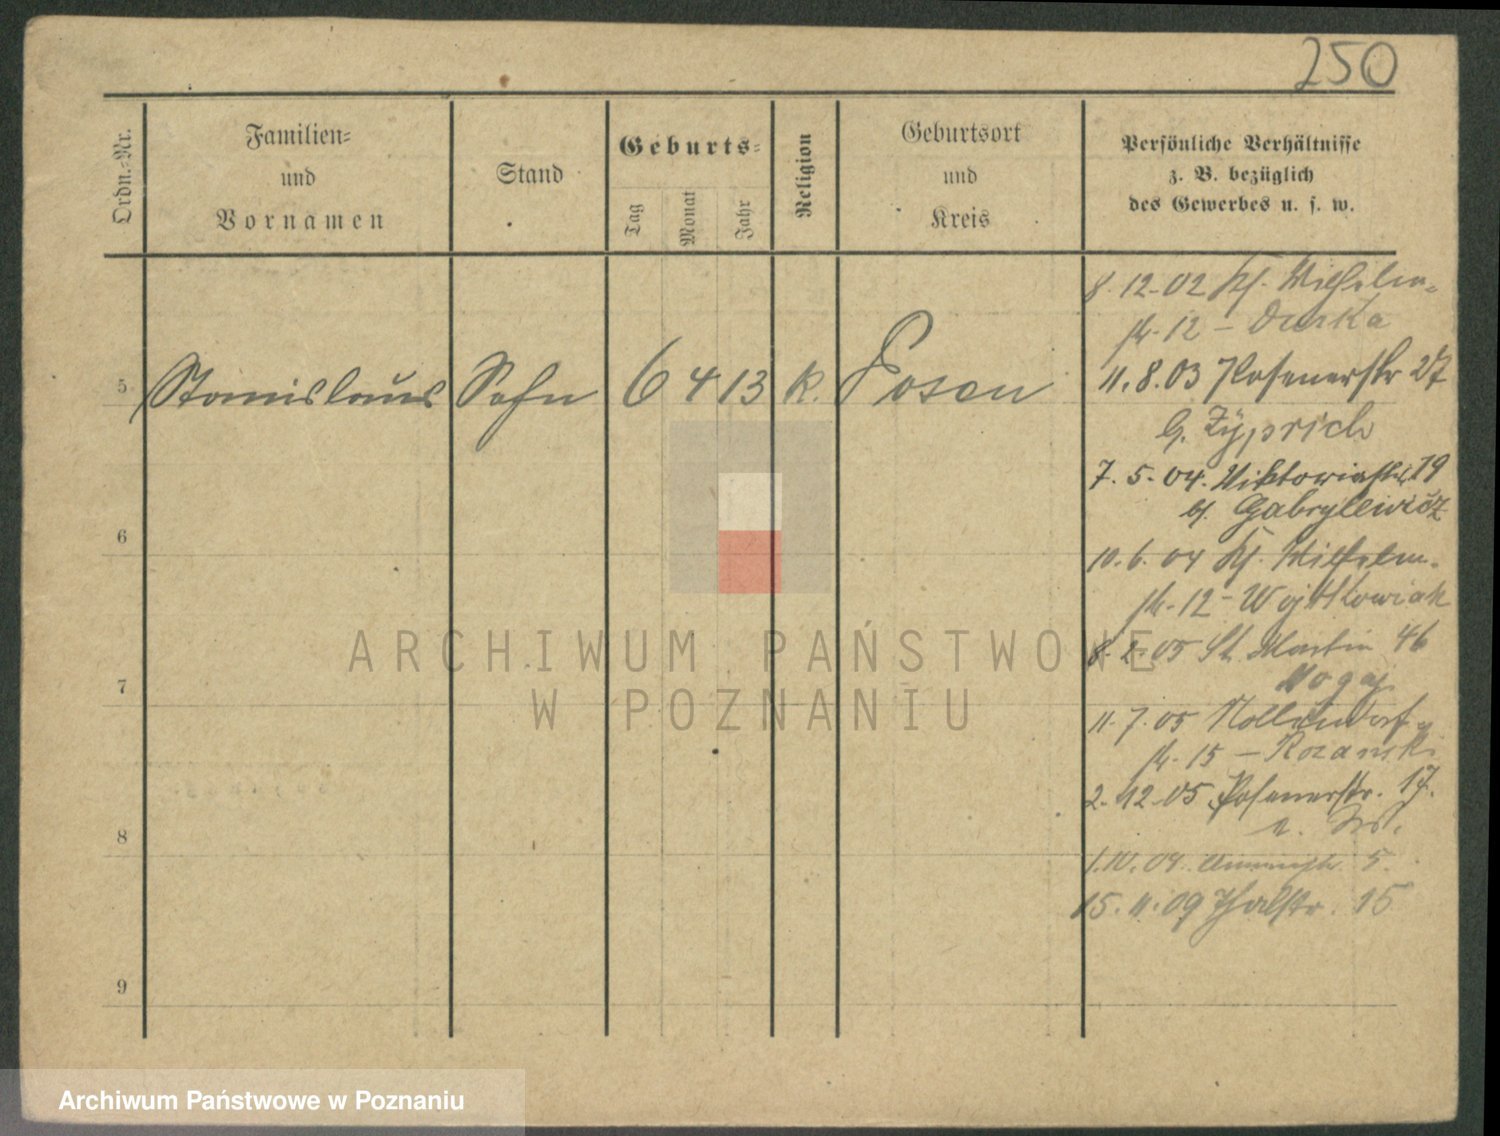 250
Ordn.-Nr.
Familien-
und
Vornamen
Stand
Geburts-
Tag
Monat
Jahr
Religion
Geburtsort
und
Kreis
Persönliche Verhältnisse
z. B. bezüglich
des Gewerbes u. s. w.
5
Stanislaus Sohn 6 4 13 k. Posen
6
7
8
9
8.12.02 Wilhelm-
str. 12 – Durka
11.8.03 Posenerstr 27
Zyprich
7.5.04. Viktoriastr. 19
b. Gabrylewicz
10.6.04 Wilhelm-
str. 12 - Wojtkowiak
8.2.05 St. Martin 46
Nogaj
11.7.05 Nollendorf
str. 15 – Rozanski
2.12.05 Posenerstr. 17.
5.
15.11.09 Thalstr. 15
ARCHIWUM PAŃSTWOWE
W POZNANIU
Archiwum Państwowe w Poznaniu